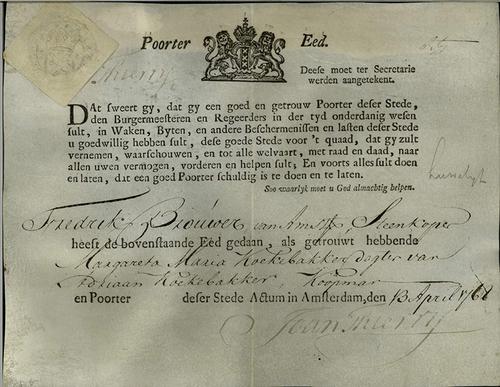 Poorter Eed.
Deese moet ter Secretarie
werden aangetekent.
DAt sweert gy, dat gy een goed en getrouw Poorter deser Stede,
den Burgermeesteren en Regeerders in der tyd onderdanig wesen
sult, in Waken, Byten, en andere Beschermenissen en lasten deser Stede
u goedwillig hebben sult, dese goede Stede voor 't quaad, dat gy zult
vernemen, waarschouwen, en tot alle welvaart, met raad en daad, naar
allen uwen vermogen, vorderen en helpen sult; En voorts alles sult doen
en laten, dat een goed Poorter schuldig is te doen en te laten.
Soo waarlyk moet u God almachtig helpen.
Fredrik Brouwer van Amst Steenkoper
heeft de bovenstaande Eed gedaan, als getrouwt hebbende
Margareta Maria Koekebakker dogter van
Adriaan Koekebakker, Koopman
en Poorter deser Stede Actum in Amsterdam, den 13 April